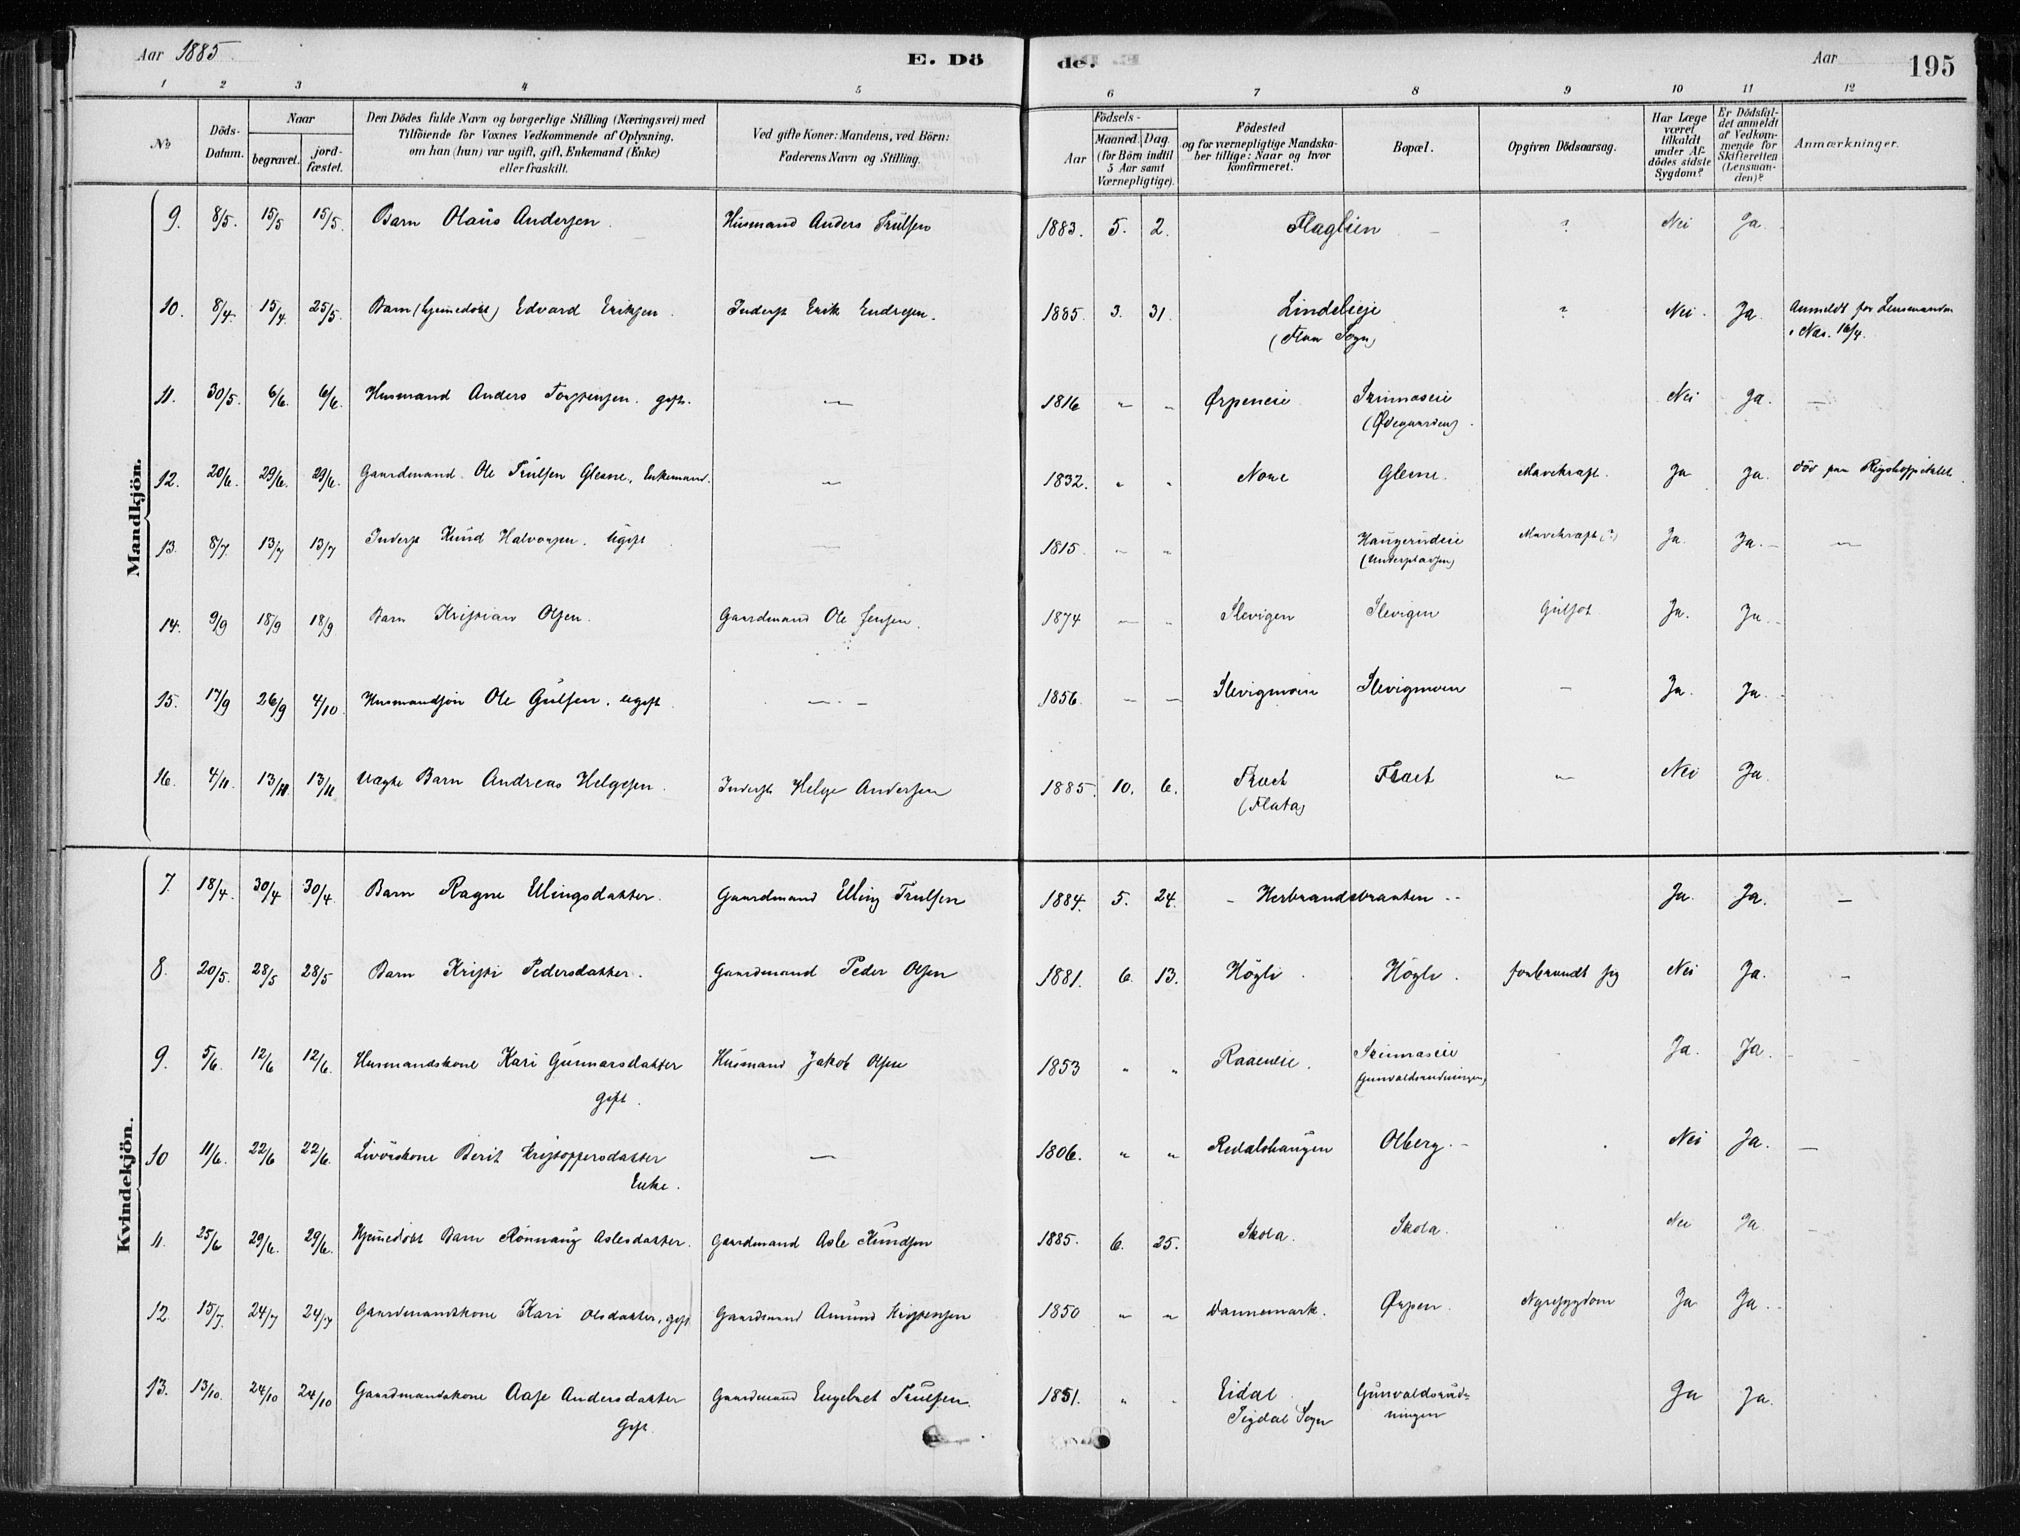 Aar 1885
E. Dö
de.
Aar
195
1 2 3 4 5 6 7 8 9 10 11 12
№
Döds-
Datum.
Naar
begravet.
jord-
fæstet.
Den Dödes fulde Navn og borgerlige Stilling (Næringsvei) med
Tilföiende for Voxnes Vedkommende af Oplysning,
om han (hun) var ugift, gift, Enkemand (Enke)
eller fraskilt.
Ved gifte Koner: Mandens, ved Börn:
Faderens Navn og Stilling.
Födsels-
Aar
Maaned. Dag.
(for Börn indtil
5 Aar samt
Værnepligtige).
Födested
og for værnepligtige Mandska-
ber tillige: Naar og hvor
konfirmeret.
Bopæl.
Opgiven Dödsaarsag.
Har Læge
været
tilkaldt
under Af-
dödes sidste
Sygdom?
Er Dödsfal-
det anmeldt
af Vedkom-
mende for
Skifteretten
(Lensman-
den)?
Anmærkninger.
Mandkjön.
9. 8/5. 15/5 15/5. Barn Olaus Andersen. Husmand Anders Trulsen 1883. 5. 2. Flaglien ? Nei Ja.
10. 8/4. 15/4. 25/5. Barn (hjemedøbt) Edvard Eriksen. Inderst Erik Endresen. 1885. 3. 31. Lindelieje ? Nei. Ja. Anmeldt for Lensmanden
(Flaa Sogn) i Næs. 16/4.
11. 30/5. 6/6. 6/6. Husmand Anders Torstensen. gift. — 1816 " " Ørpeneie Skinnaseie Nei Ja. —
(Ødegaarden).
12. 20/6. 29/6. 29/6. Gaardmand Ole Trulsen Glesne, Enkemand. — 1832. " " Nore Glesne. Mavekræft. Ja Ja. død paa Rigshospitalet.
13. 8/7. 13/7 13/7 Inderst Knud Halvorsen. ugift — 1815. " " Haugerudeie Mavekræft (?) Ja. Ja. —
(Underplassen)
14. 9/9 18/9 18/9 Barn Kristian Olsen. Gaardmand Ole Jensen. 1874 — " Slevigen Slevigen Gulsot Ja. Ja.
15. 17/9 26/9 4/10. Husmandsøn Ole Gulsen. ugift — 1856. — — Slevigmoin Slevigmoen — Ja. Ja.
16. 4/11. 13/11 13/11 Uægte Barn Andreas Helgesen. Inderst Helge Andersen 1885. 10. 6. Træet Træet " Nei Ja.
(Flata)
Kvindekjön.
7. 18/4. 30/4 30/4. Barn Ragne Ellingsdatter. Gaardmand Elling Trulsen 1884. 5. 24. Herbrandsbraaten Ja. Ja. —
8. 20/5. 28/5 28/5 Barn Kristi Pedersdatter. Gaardmand Peder Olsen 1881. 6. 13. Högli. Högli. forbrændt sig Nei Ja. —
9. 5/6. 12/6 12/6. Husmandskone Kari Gunnarsdatter Husmand Jakob Olsen 1853 " " Raaeneie. Skinnaseie Ja. Ja.
gift. (Gunvaldsrudningen)
10 11/6. 22/6 22/6. Livörskone Berit Kristoppersdatter — 1806. " " Redalshaugen Olberg. Nei Ja. —
Enke.
11. 25/6 29/6. 29/6. Hjemedöbt Barn Rønnaug Aslesdatter. Gaardmand Asle Knudsen 1885. 6. 25. Skola. Skola. Nei Ja.
12. 15/7. 24/7 24/7 Gaardmandskone Kari Olsdatter, gift Gaardmand Amund Kristensen 1850 " " Dannemark. Ørpen. Nyresygdom Ja Ja.
13. 13/10. 24/10 24/10 Gaardmandskone Aase Andersdatter Gaardmand Engebret Trulsen. 1851. " " Eidal Gunvaldsrud- Ja Ja.
Gift. Sigdal Sogn ningen